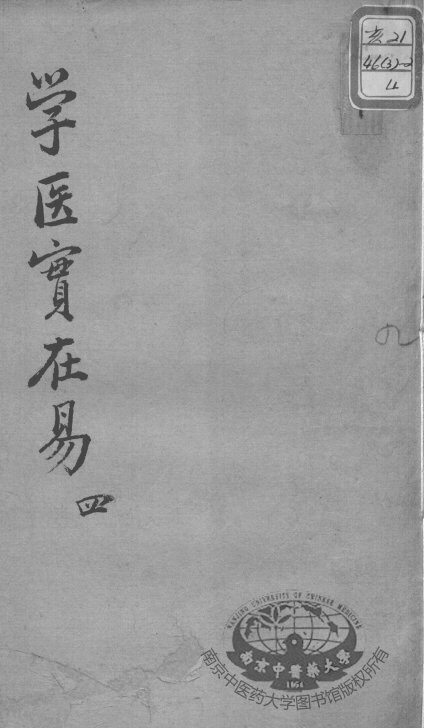 学医實在易
四
亥21
46(3)-2
4
NANJING UNIVERSITY OF CHINESE MEDICINE
南京中醫藥大學
1954
南京中医药大学图书馆版权所有